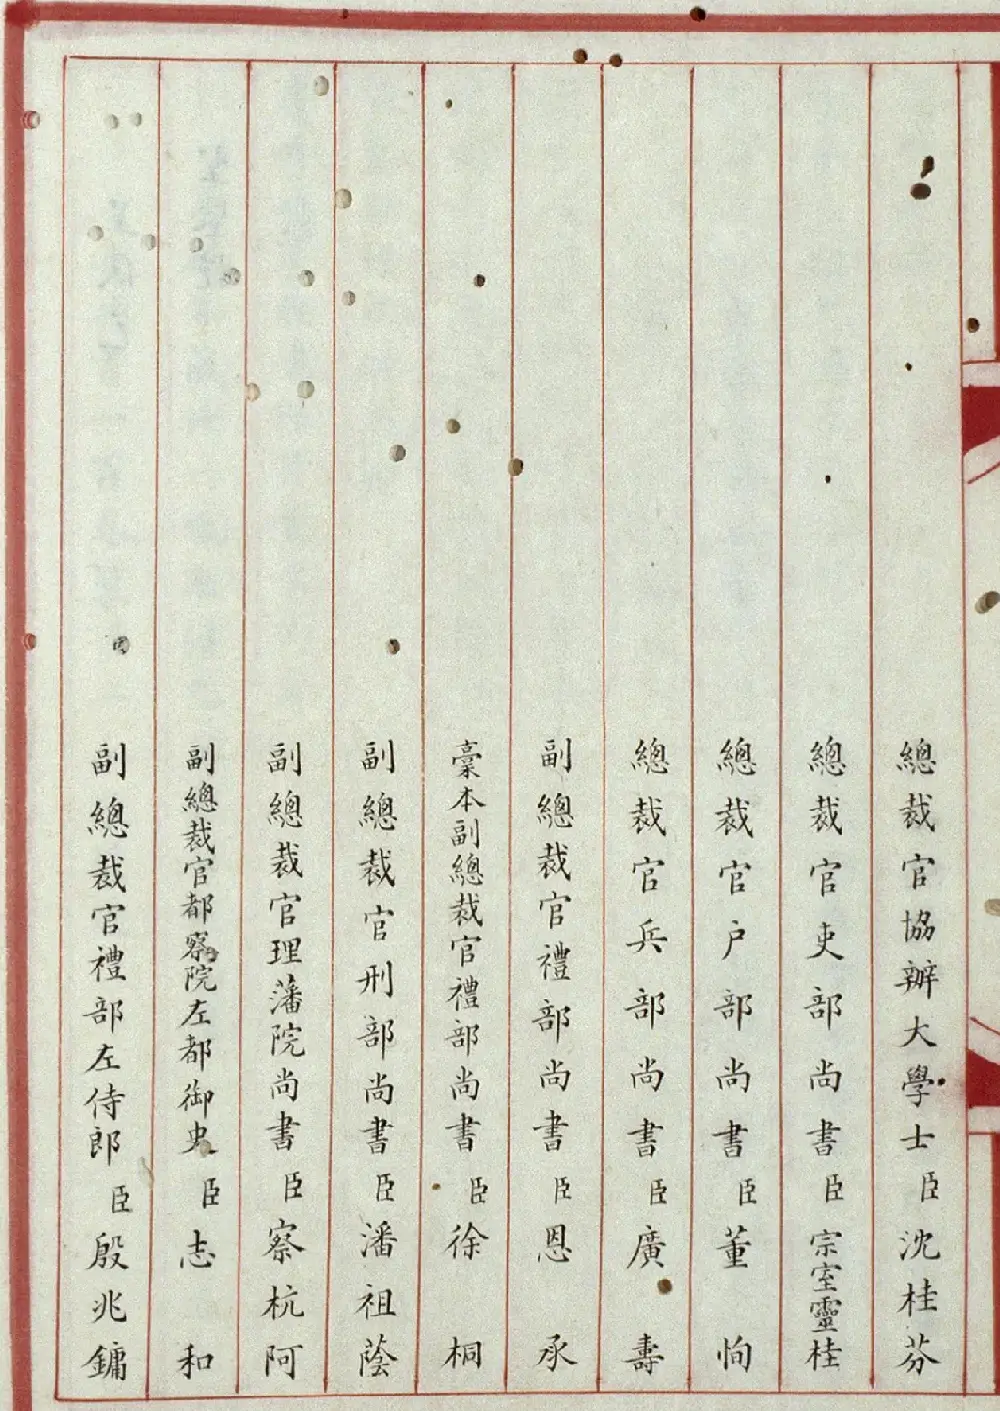 總裁官協辦大學士臣沈桂芬
總裁官吏部尚書臣宗室靈桂
總裁官户部尚書臣董恂
總裁官兵部尚書臣廣壽
副總裁官禮部尚書臣恩承
稾本副總裁官禮部尚書臣徐桐
副總裁官刑部尚書臣潘祖蔭
副總裁官理藩院尚書臣察杭阿
副總裁官都察院左都御史臣志和
副總裁官禮部左侍郎臣殷兆鏞